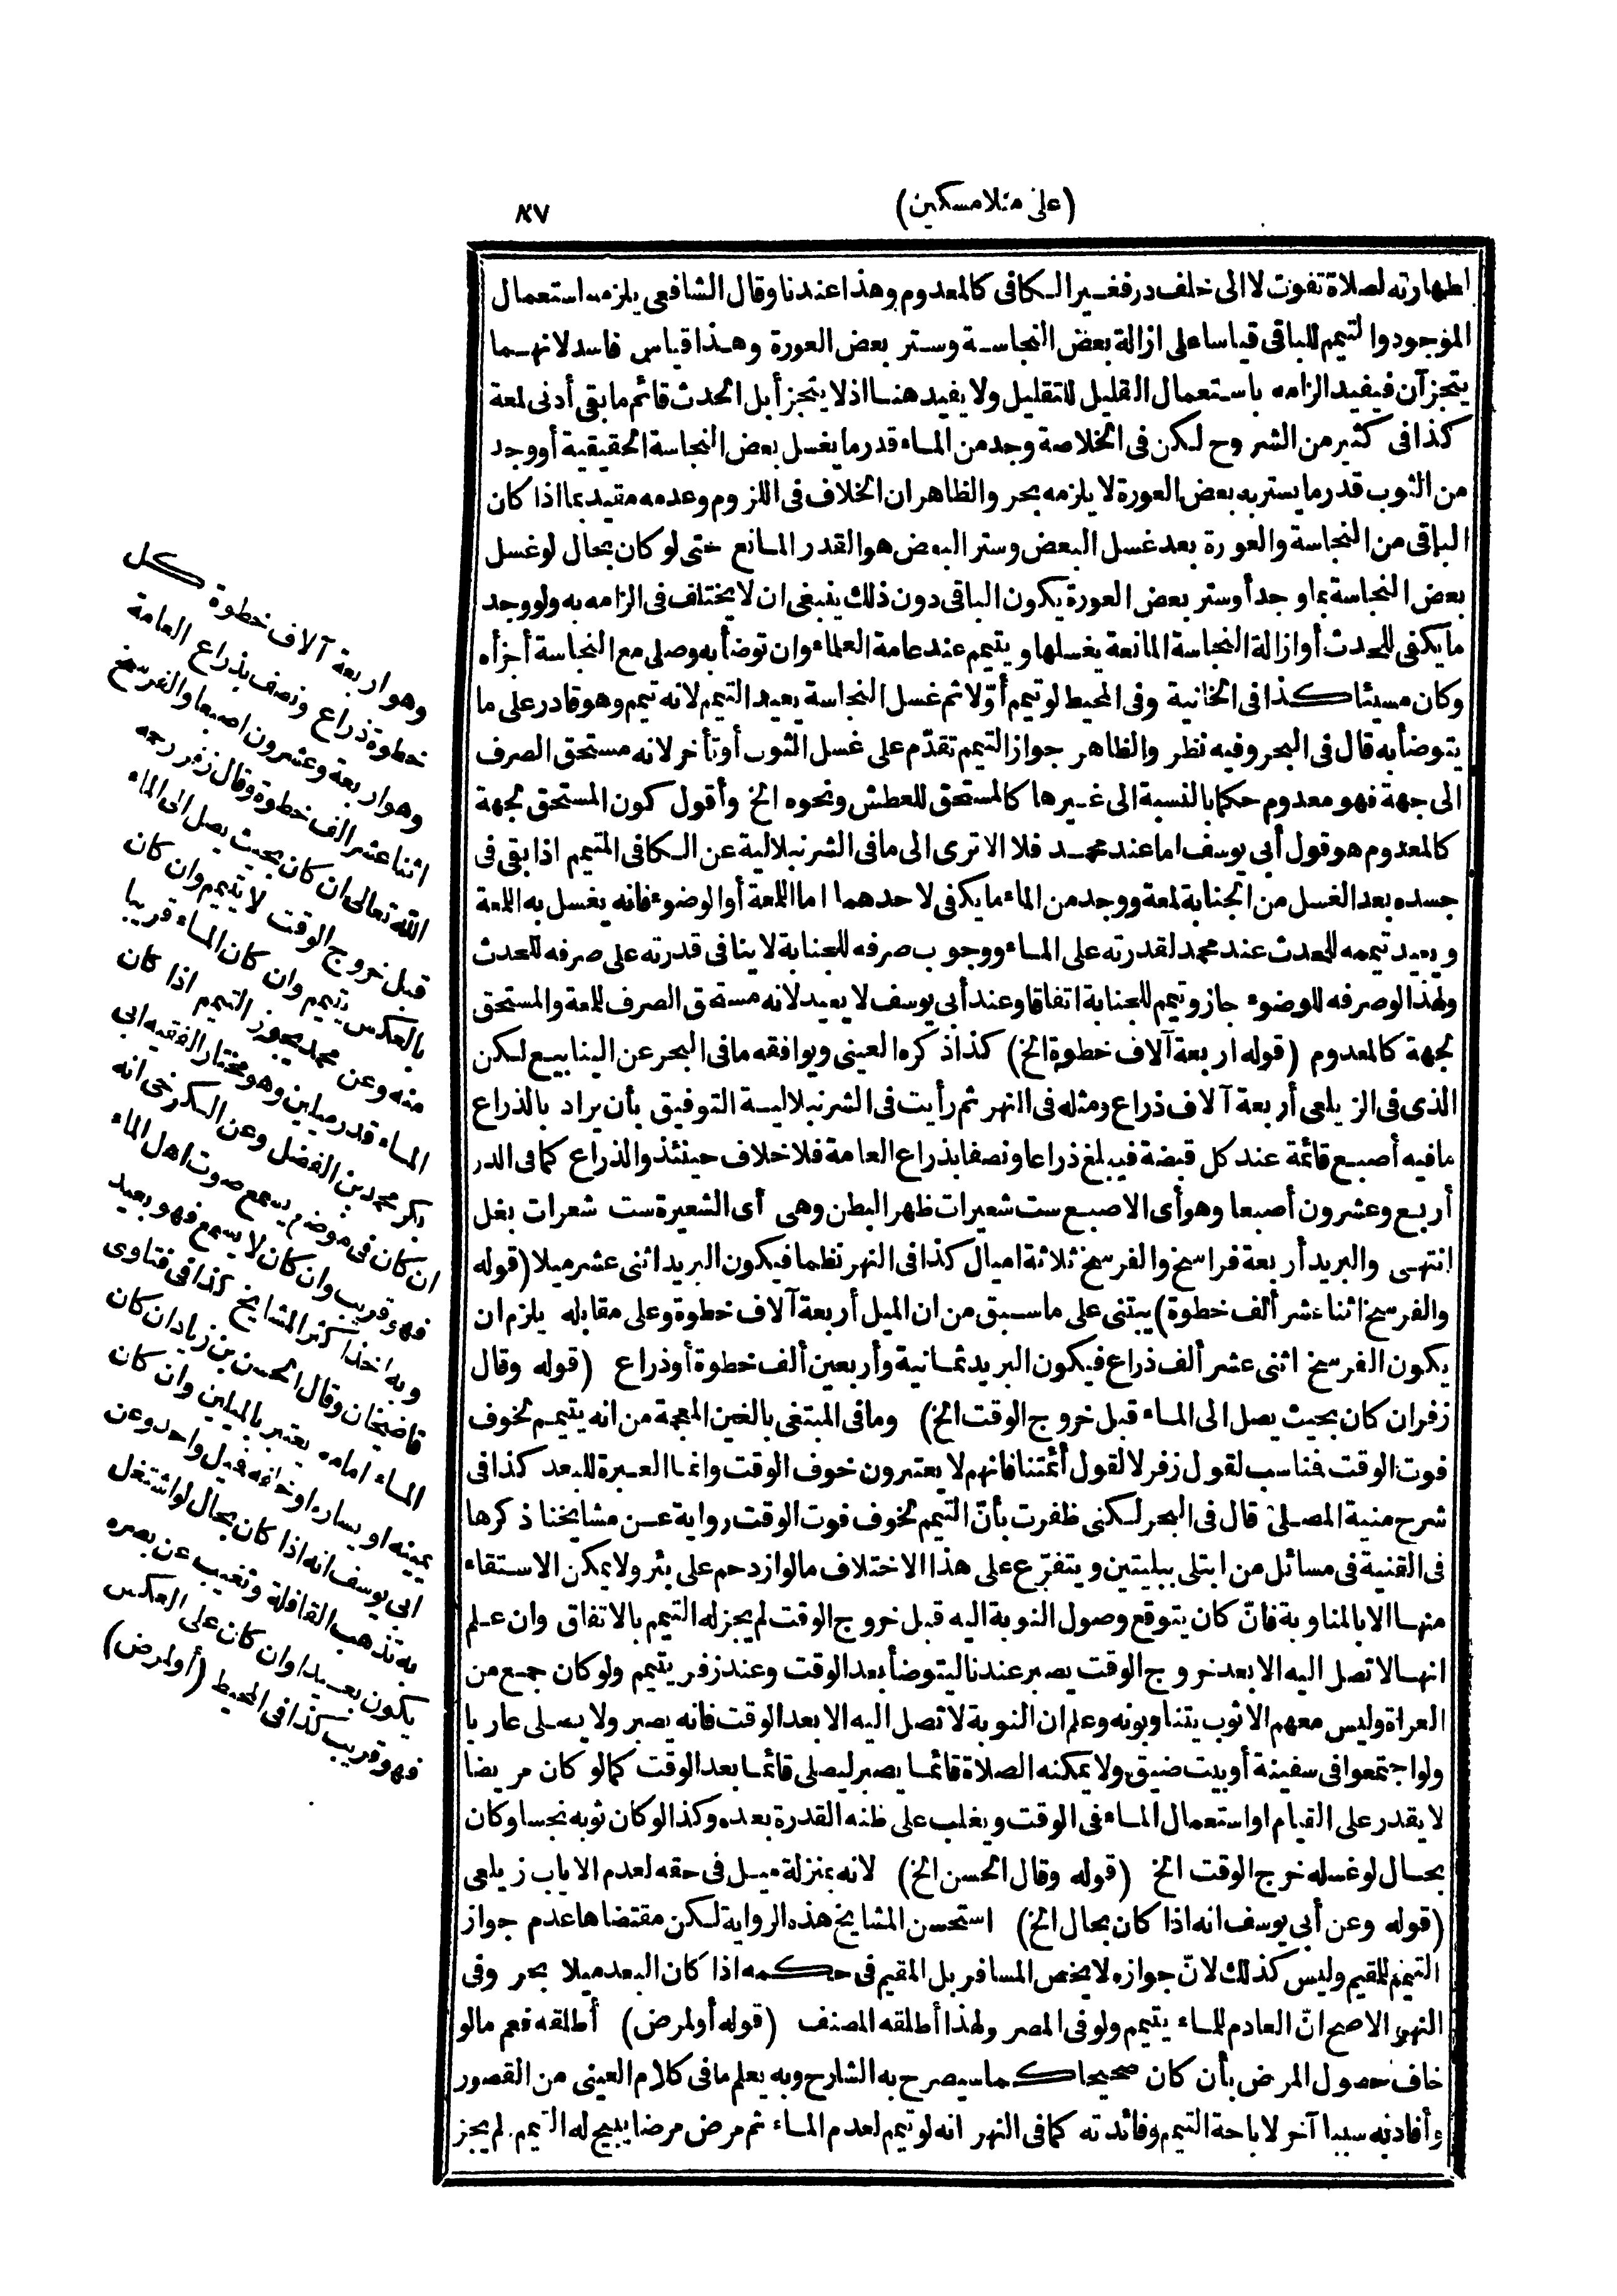 (على منلا مسكين)
٨٧
لطهارته لصلاة تفوت لا الى خلف درر فغير الكافى كالمعدوم وهذا عندنا وقال الشافعى يلزمه استعمال
الموجود والتيمم للباقى قياسا على ازالة بعض النجاسة وستر بعض العورة وهذا قياس فاسد لانهما
يتجزآن فيفيد الزامه باستعمال القليل للتقليل ولا يفيد هنا اذ لا يتجزأ بل الحدث قائم ما بقى أدنى لمعة
كذا فى كثير من الشروح لكن فى الخلاصة وجد من الماء قدر ما يغسل بعض النجاسة الحقيقية أو وجد
من الثوب قدر ما يستر به بعض العورة لا يلزمه بحر والظاهر ان الخلاف فى اللزوم وعدمه مقيد بما اذا كان
الباقى من النجاسة والعورة بعد غسل البعض وستر البعض هو القدر المانع حتى لو كان بحال لو غسل
بعض النجاسة بما وجد أو ستر بعض العورة يكون الباقى دون ذلك ينبغى ان لا يختلف فى الزامه به ولو وجد
ما يكفى للحدث أو ازالة النجاسة المانعة يغسلها ويتيمم عند عامة العلماء وان توضأ به وصلى مع النجاسة أجزأه
وكان مسيئا كذا فى الخانية وفى المحيط لو تيمم أوّلا ثم غسل النجاسة يعيد التيمم لانه تيمم وهو قادر على ما
يتوضأ به قال فى البحر وفيه نظر والظاهر جواز التيمم تقدّم على غسل الثوب أو تأخر لانه مستحق الصرف
الى جهة فهو معدوم حكما بالنسبة الى غيرها كالمستحق للعطش ونحوه الخ وأقول كون المستحق لجهة
كالمعدوم هو قول أبى يوسف اما عند محمد فلا الا ترى الى ما فى الشرنبلالية عن الكافى المتيمم اذا بقى فى
جسده بعد الغسل من الجنابة لمعة ووجد من الماء ما يكفى لاحدهما اما اللمعة أو الوضوء فانه يغسل به اللمعة
ويعيد تيممه للحدث عند محمد لقدرته على الماء ووجوب صرفه للجنابة لا ينافى قدرته على صرفه للحدث
ولهذا لو صرفه للوضوء جاز وتيمم للجنابة اتفاقا وعند أبى يوسف لا يعيد لانه مستحق الصرف للمعة والمستحق
لجهة كالمعدوم (قوله اربعة آلاف خطوة الخ) كذا ذكره العينى ويوافقه ما فى البحر عن الينابيع لكن
الذى فى الزيلعى أربعة آلاف ذراع ومثله فى النهر ثم رأيت فى الشرنبلالية التوفيق بأن يراد بالذراع
ما فيه أصبع قائمة عند كل قبضة فيبلغ ذراعا ونصفا بذراع العامة فلا خلاف حينئذ والذراع كما فى الدر
أربع وعشرون أصبعا وهو أى الاصبع ست شعيرات ظهر البطن وهى أى الشعيرة ست شعرات بغل
انتهى والبريد أربعة فراسخ والفرسخ ثلاثة اميال كذا فى النهر نظما فيكون البريد اثنى عشر ميلا (قوله
والفرسخ اثنا عشر ألف خطوة) يبتنى على ما سبق من ان الميل أربعة آلاف خطوة وعلى مقابله يلزم ان
يكون الفرسخ اثنى عشر ألف ذراع فيكون البريد ثمانية وأربعين ألف خطوة أو ذراع (قوله وقال
زفر ان كان بحيث يصل الى الماء قبل خروج الوقت الخ) وما فى المبتغى بالغين المعجمة من انه يتيمم لخوف
فوت الوقت فناسب لقول زفر لا لقول أئمتنا فانهم لا يعتبرون خوف الوقت وانما العبرة للبعد كذا فى
شرح منية المصلى قال فى البحر لكنى ظفرت بأنّ التيمم لخوف فوت الوقت رواية عن مشايخنا ذكرها
فى القنية فى مسائل من ابتلى ببليتين ويتفرّع على هذا الاختلاف ما لو ازدحم على بئر ولا يمكن الاستقاء
منها الا بالمناوبة فانّ كان يتوقع وصول النوبة اليه قبل خروج الوقت لم يجز له التيمم بالاتفاق وان علم
انها لا تصل اليه الا بعد خروج الوقت يصبر عندنا ليتوضأ بعد الوقت وعند زفر يتيمم ولو كان جمع من
العراة وليس معهم الا ثوب يتناوبونه وعلم ان النوبة لا تصل اليه الا بعد الوقت فانه يصبر ولا يصلى عاريا
ولو اجتمعوا فى سفينة أو بيت ضيق ولا يمكنه الصلاة قائما يصبر ليصلى قائما بعد الوقت كما لو كان مريضا
لا يقدر على القيام او استعمال الماء فى الوقت ويغلب على ظنه القدرة بعده وكذا لو كان ثوبه نجسا وكان
بحال لو غسله خرج الوقت الخ (قوله وقال الحسن الخ) لانه بمنزلة ميل فى حقه لعدم الاياب زيلعى
(قوله وعن أبى يوسف انه اذا كان بحال الخ) استحسن المشايخ هذه الرواية لكن مقتضاها عدم جواز
التيمم للمقيم وليس كذلك لانّ جوازه لا يخص المسافر بل المقيم فى حكمه اذا كان البعد ميلا بحر وفى
النهر الاصح انّ العادم للماء يتيمم ولو فى المصر ولهذا أطلقه المصنف (قوله أو لمرض) أطلقه فعم ما لو
خاف حصول المرض بأن كان صحيحا كما سيصرح به الشارح وبه يعلم ما فى كلام العينى من القصور
وأفاد به سببا آخر لاباحة التيمم وفائدته كما فى النهر انه لو تيمم لعدم الماء ثم مرض مرضا يبيح له التيمم لم يجز
وهو اربعة آلاف خطوة كل
خطوة ذراع ونصف بذراع العامة
وهو اربعة وعشرون اصبعا والفرسخ
اثنا عشر الف خطوة وقال زفر رحمه
الله تعالى ان كان بحيث يصل الى الماء
قبل خروج الوقت لا يتيمم وان كان
بالعكس يتيمم وان كان الماء قريبا
منه وعن محمد يجوز التيمم اذا كان
الماء قدر ميلين وهو مختار الفقيه ابى
بكر محمد بن الفضل وعن الكرخى انه
ان كان فى موضع يسمع صوت اهل الماء
فهو قريب وان كان لا يسمع فهو بعيد
وبه اخذ اكثر المشايخ كذا فى فتاوى
قاضيخان وقال الحسن بن زياد ان كان
الماء امامه يعتبر بالميلين وان كان
يمينه او يساره او خلفه فميل واحد وعن
ابى يوسف انه اذا كان بحال لو اشتغل
به تذهب القافلة وتغيب عن بصره
يكون بعيدا وان كان على العكس
فهو قريب كذا فى المحيط (أو لمرض)